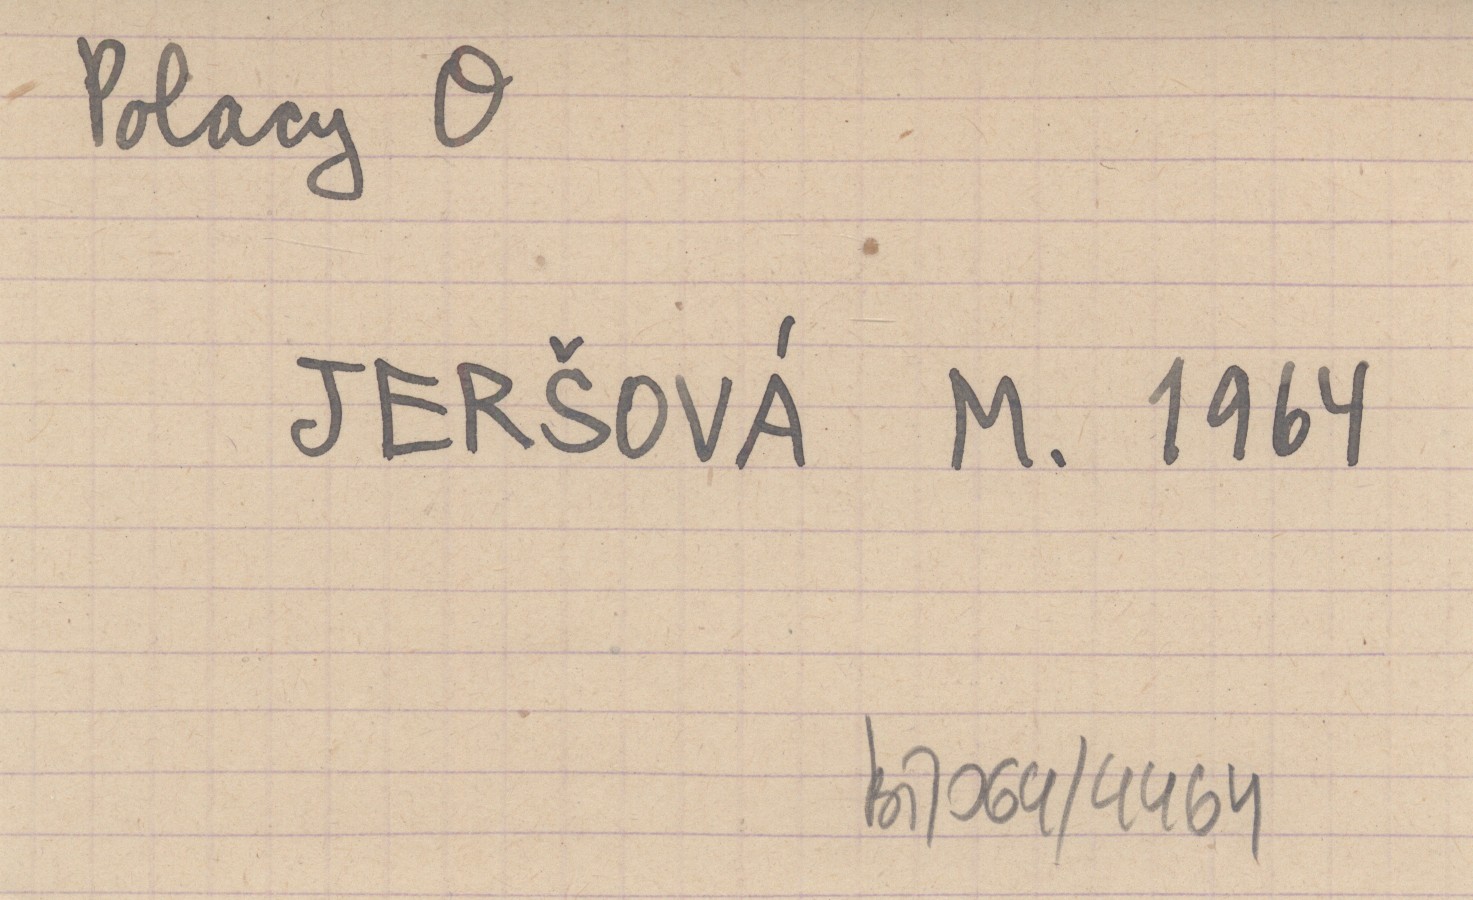 Polacy O
JERŠOVÁ M. 1964
064/4464